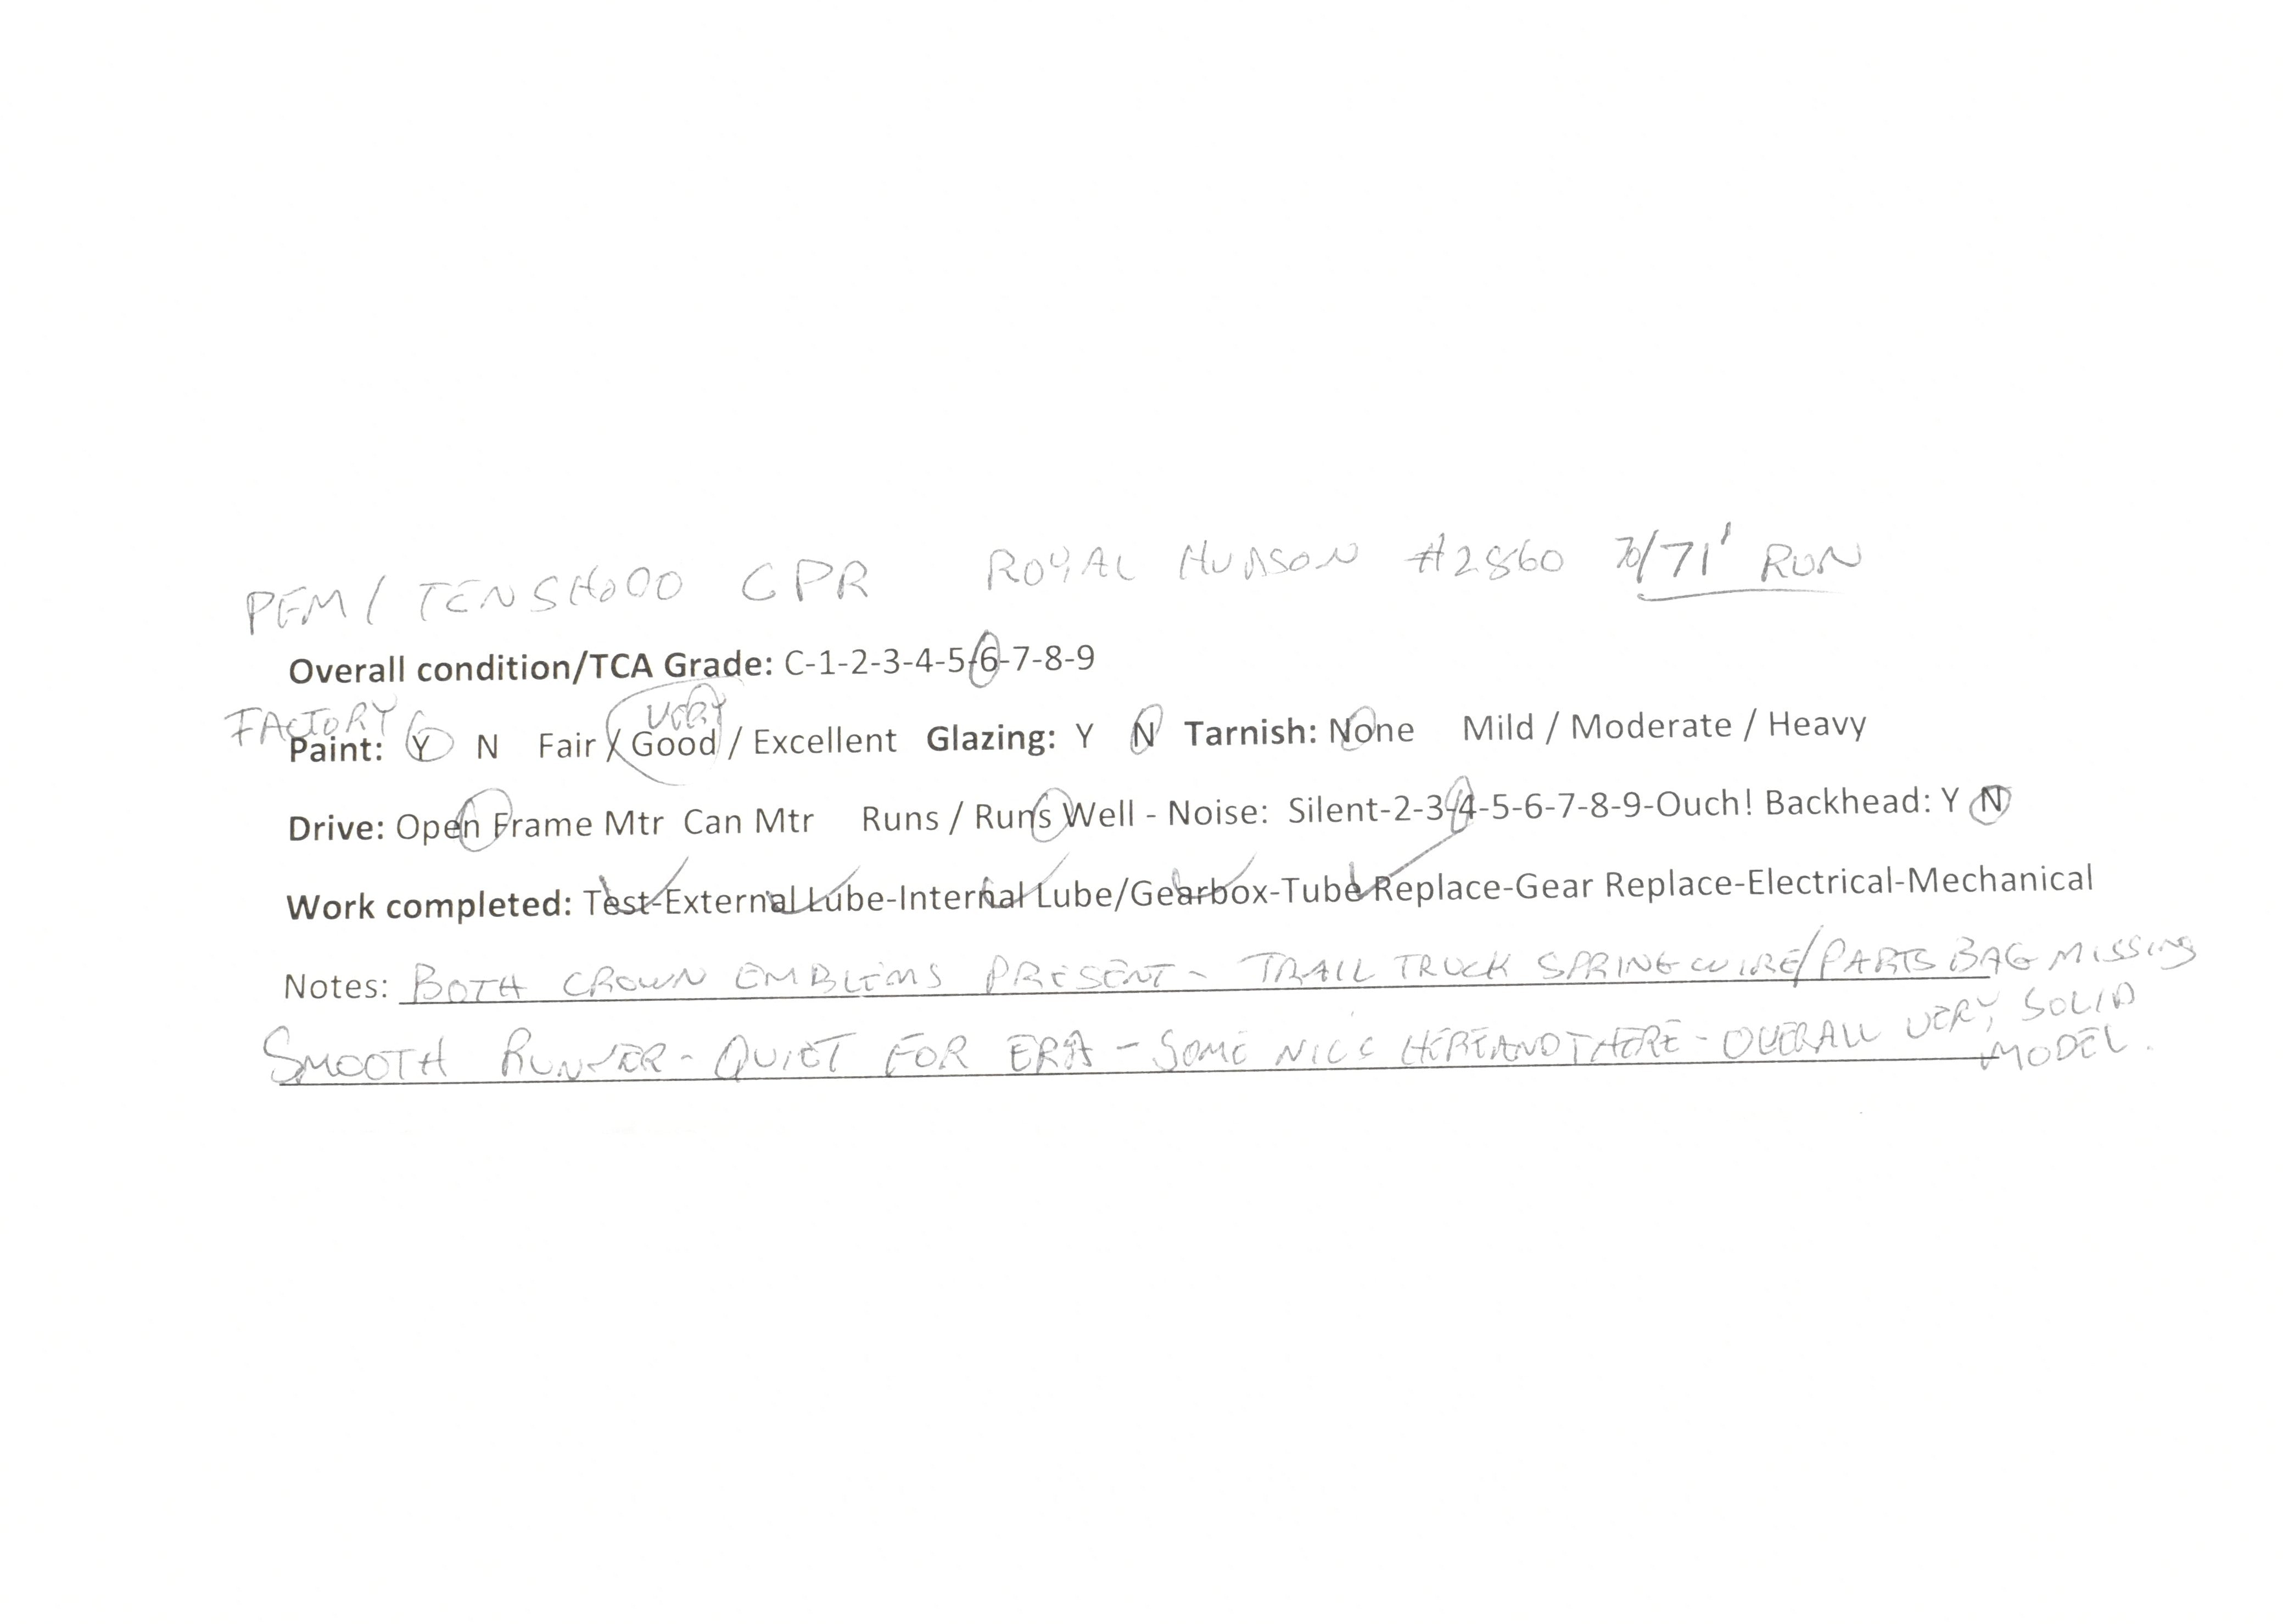 PFM / TENSHODO CPR ROYAL HUDSON #2860 70/71' RUN
Overall condition/TCA Grade: C-1-2-3-4-5-6-7-8-9
FACTORY VERY
Paint: Y N Fair / Good / Excellent Glazing: Y N Tarnish: None Mild / Moderate / Heavy
Drive: Open Frame Mtr Can Mtr Runs / Runs Well - Noise: Silent-2-3-4-5-6-7-8-9-Ouch! Backhead: Y N
Work completed: Test-External Lube-Internal Lube/Gearbox-Tube Replace-Gear Replace-Electrical-Mechanical
Notes: BOTH CROWN EMBLEMS PRESENT - TRAIL TRUCK SPRING WIRE/PARTS BAG MISSING
SMOOTH RUNNER - QUIET FOR ERA - SOME HERE AND THERE - OVERALL VERY SOLID
MODEL.